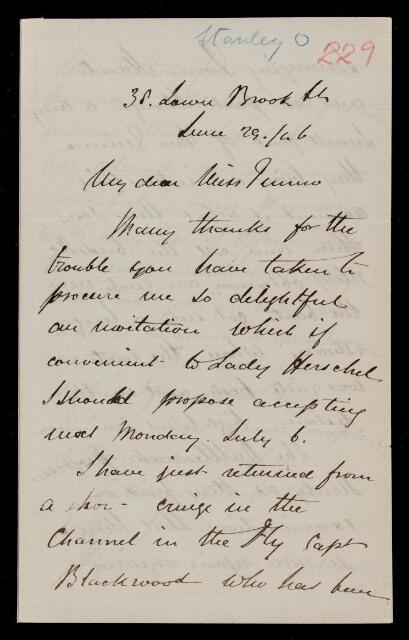 Stanley O
229
38. Lower Brook St.
June 29./46
My dear Miss
Many thanks for the
trouble you have taken to
procure me so delightful
an invitation which if
convenient to Lady Herschel
I should propose accepting
next Monday. July 6.
I have just returned from
a short cruize in the
Channel in the Fly Capt
Blackwood who has been